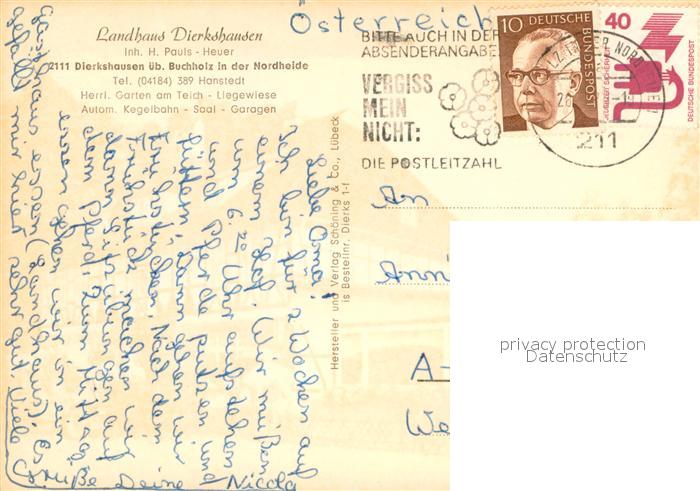 Österreich
Landhaus Dierkshausen
Inh. H. Pauls - Heuer
2111 Dierkshausen üb. Buchholz in der Nordheide
Tel. (04184) 389 Hanstedt
Herrl. Garten am Teich - Liegewiese
Autom. Kegelbahn - Saal - Garagen
BITTE AUCH IN DER
ABSENDERANGABE
VERGISS
MEIN
NICHT:
DIE POSTLEITZAHL
10 DEUTSCHE
BUNDESPOST
40
DEUTSCHE BUNDESPOST
211
Hersteller und Verlag Schöning & Co., Lübeck
is Bestellnr. Dierks 1-1
Liebe Oma!
Ich bin für 2 Wochen auf
einem Hof. Wir müßen
um 6.20 Uhr aufstehen
und Pferde putzen und
füttern, dann gehen wir
Frühstücken. Nach dem
Frühstück machen wir
dann Sitzübungen auf
dem Pferd. Zum Mittag-
essen gehen wir in ein
Gasthaus essen (Landhaus). Es
gefällt mir hier sehr gut. Viele
Grüße Deine Nicola
An
A-
We
privacy protection
Datenschutz